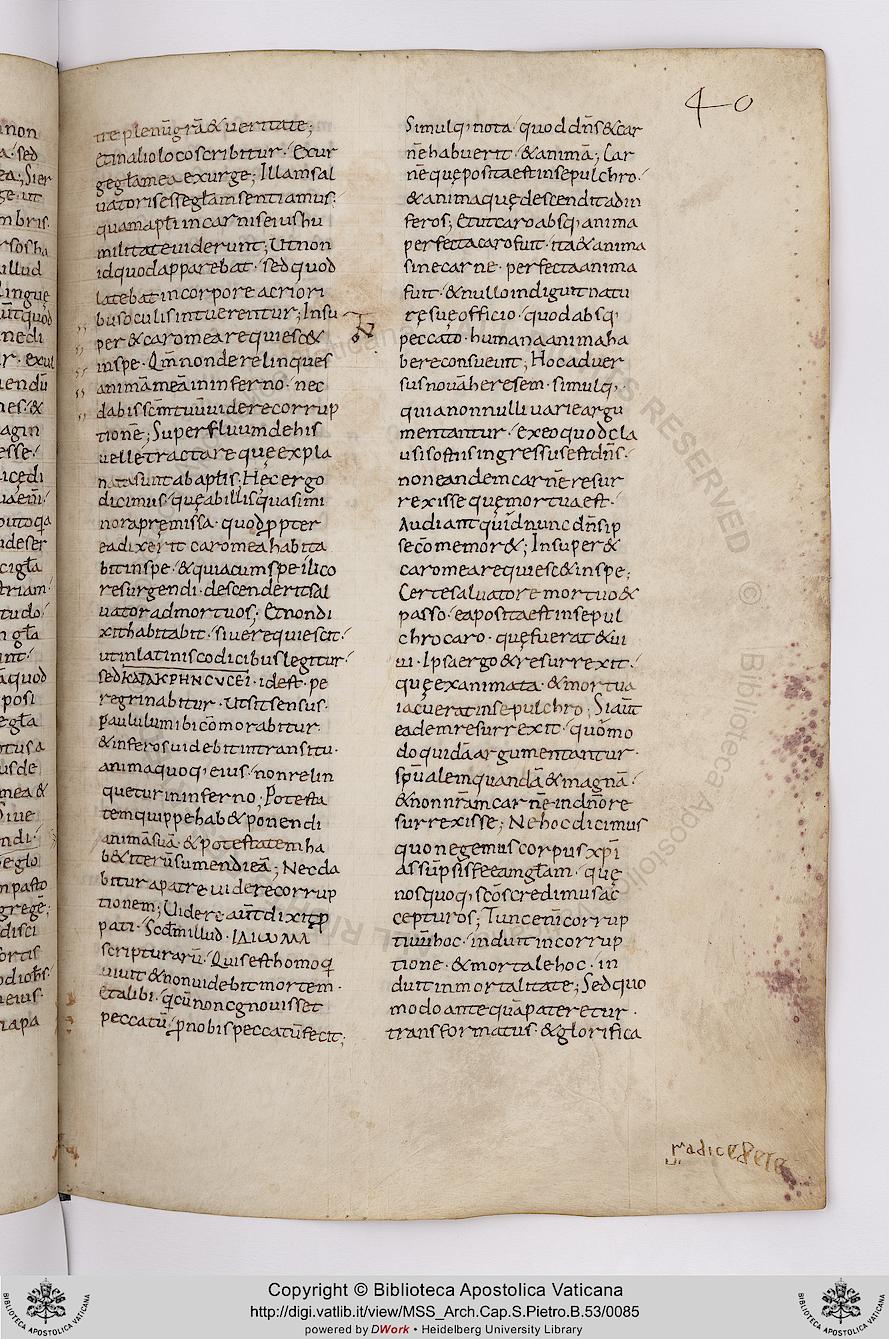 40
tre plenū grā & ueritate;
et in alio loco scribitur · Exur
ge glā mea exurge; Illam sal
uatoris esse glām sentiamus ·
quam aptī in carnis eius hu
militate uiderunt; Ut non
id quod apparebat · sed quod
latebat in corpore acriori
bus oculis intuerentur; Insu
per & caro mea requiesc&
in spe · Qm̄ non derelinques
animā meā in inferno · nec
dabis sc̄m tuū uidere corrup
tionē; Superfluum de his
uelle tractare quę expla
nata sunt ab aptīs; Hęc ergo
dicimus · quę ab illis quasi mi
nora pręmissa · quod ꝓpter
ea dixerit caro mea habita
bit in spe · & quia cum spe ilico
resurgendi · descenderit sal
uator ad mortuos; Et non di
xit habitabit · siue requiescit ·
ut in latinis codicibus legitur ·
sed ΚΑΤΑCΚΗΝCVCEI · id est · pe
regrinabitur · Ut sit sensus ·
Paululum ibi cōmorabitur ·
& inferos uidebit in transitu ·
anima quoq; eius · non relin
quetur in inferno; Potesta
tem quippe hab& ponendi
animā suā · & potestatem ha
b& iterū sumendi eā; Nec da
bitur a patre uidere corrup
tionem; Uidere aūt dixit ꝓ
pati · Scdm̄ illud · ΙΔΙΩΜΑ
scripturarū · Quis est homo q̄
uiuit & non uidebit mortem ·
Et alibi · q̄ cū non cgnouisset
peccatū · p̱ nobis peccatū fecit;
Simulq; nota · quod dn̄s & car
nē habuerit · & animā; Car
nē quę posita est in sepulchro ·
& anima quę descendit ad in
feros; Et ut caro absq; anima
perfecta caro fuit · ita & anima
sine carne · perfecta anima
fuit · & nullo indiguit natu
rę suę officio · quod absq;
peccato · humana anima ha
bere consueuit; Hoc aduer
sus nouā heresem · simulq; ·
quia nonnulli uarie argu
mentantur · ex eo quod cla
usis ostiis ingressus est dn̄s ·
non eandem carnē resur
rexisse quę mortua est ·
Audiant quid nunc dn̄s ip
se cōmemor&; Insuper &
caro mea requiesc& in spe;
Certe saluatore mortuo &
passo · ea posita est in sepul
chro caro · quę fuerat & ui
ui · Ipsa ergo & resurrexit ·
quę exanimata · & mortua
iacuerat in sepulchro; Si aūt
eadem resurrexit · quōmo
do quidā argumentantur ·
spū alem quandā & magnā ·
& non nrā̄m carnē in dn̄o re
surrexisse; Ne hoc dicimus
quo negemus corpus xp̄i
assūpsisse eam glām · quę
nos quoq; scōs credimus ac
cepturos; Tunc enī corrup
tiuū hoc · induit incorrup
tione · & mortale hoc · in
duit inmortalitate; Sed quo
modo ante quā pateretur ·
transformatus · & glorifica
Copyright © Biblioteca Apostolica Vaticana
http://digi.vatlib.it/view/MSS_Arch.Cap.S.Pietro.B.53/0085
powered by DWork • Heidelberg University Library